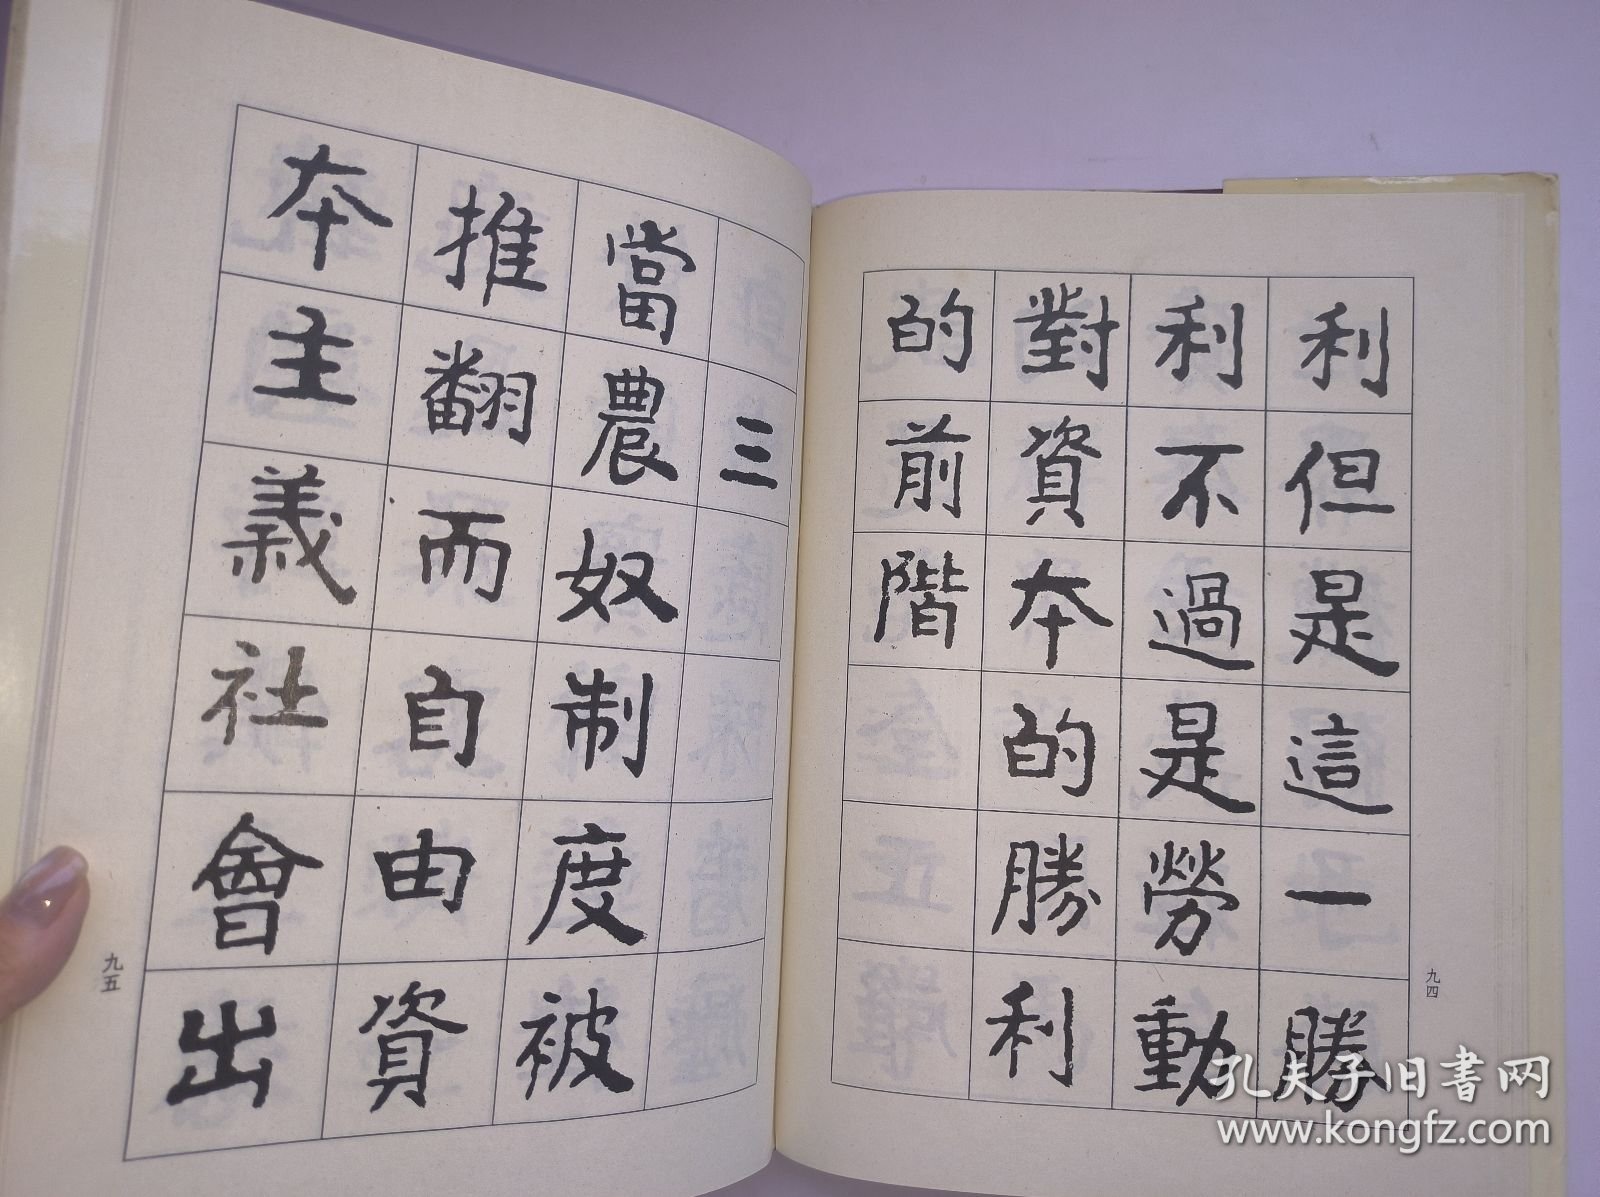 利但是這一勝
利不過是勞動
對資本的勝利
的前階
九四
三
當農奴制度被
推翻而自由資
本主義社會出
九五
孔夫子旧書网
www.kongfz.com